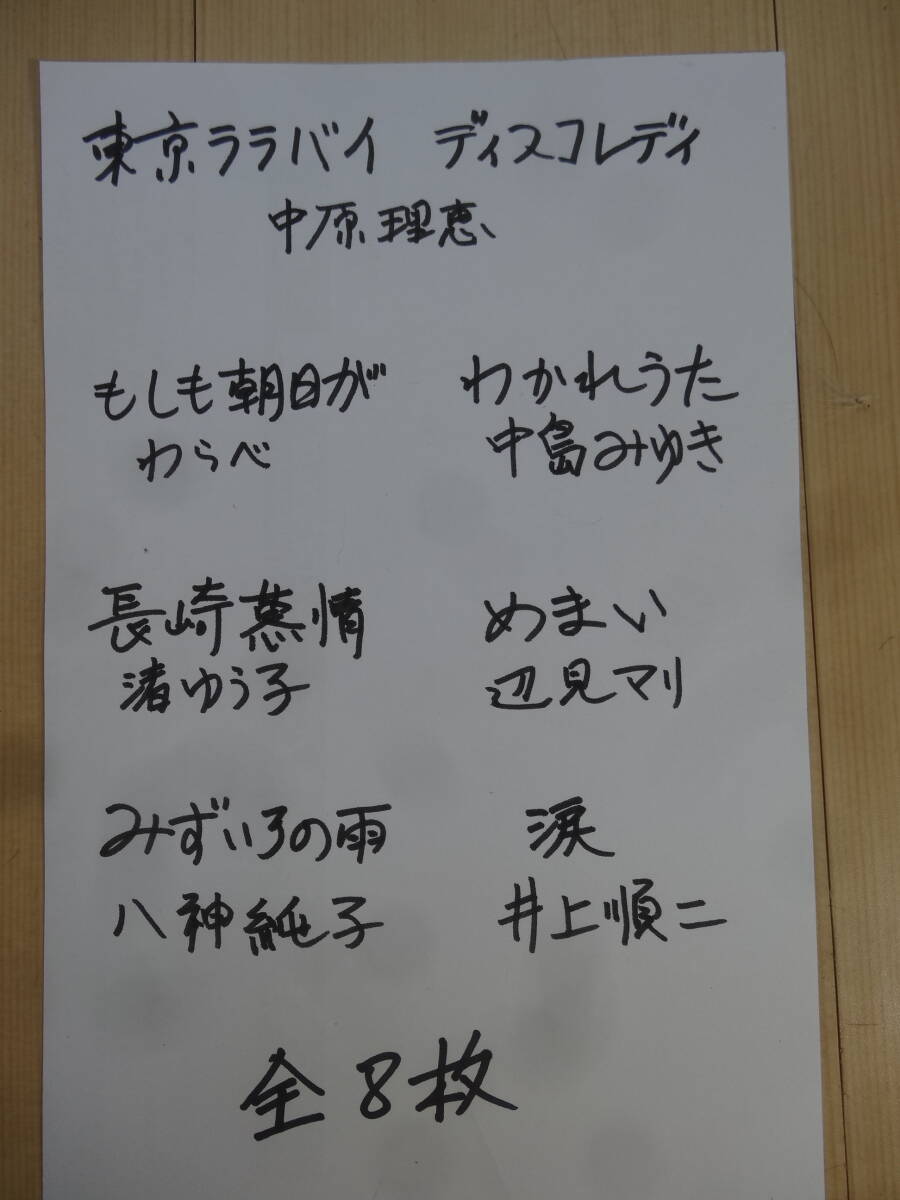 東京ララバイ ディスコレディ
中原理恵
もしも朝日が わかれうた
わらべ 中島みゆき
長崎慕情 めまい
渚ゆう子 辺見マリ
みずいろの雨 涙
八神純子 井上順二
全8枚